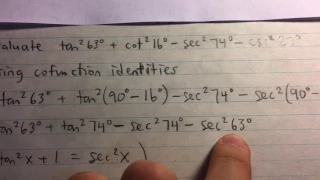 evaluate tan²63° + cot²16° - sec²74° - csc²27°
using cofunction identities
tan²63° + tan²(90° - 16°) - sec²74° - sec²(90° -
tan²63° + tan²74° - sec²74° - sec²63°
tan²x + 1 = sec²x )